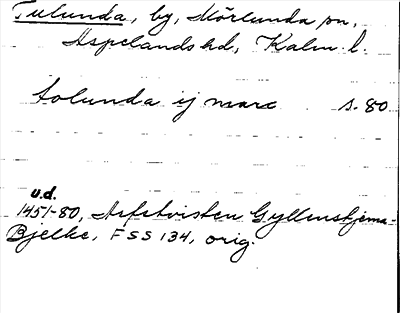 Tulunda, by, Mörlunda sn,
Aspelands hd, Kalm. l.
tolunda ij marc s. 80
u.d.
1451-80, Arfstvisten Gyllenstjerna-
Bjelke, FSS 134, orig.